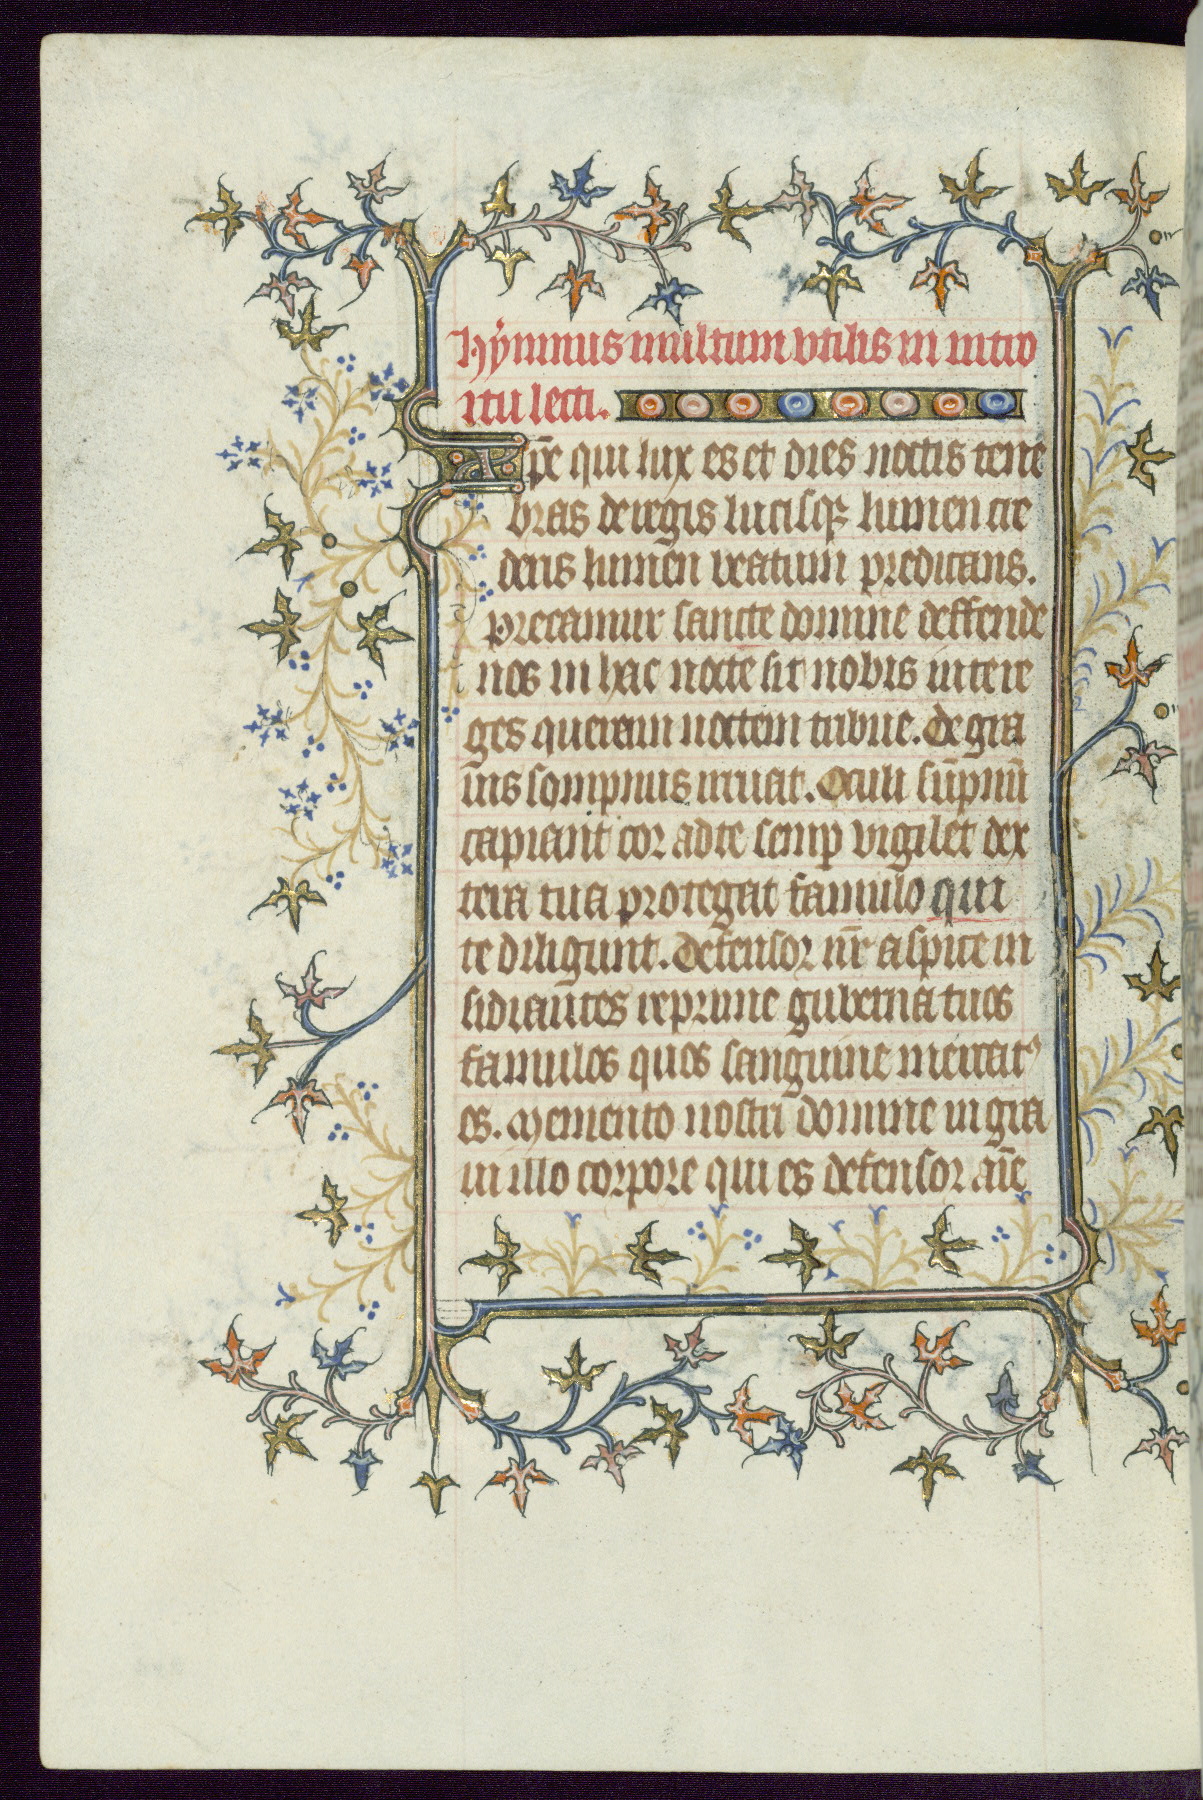 Hẏmnus multum vtilis in intro
itu lecti.
Xp̄e qui lux es et dies noctis tene
bras detegis lucisq; lumen cre
deris lumen beatum predicans.
precamur sancte domine deffende
nos in hac nocte sit nobis in te re
q̄es quietam noctem tribue. Ne gra
uis sompnus irruat. Oculi sūpnū
capiant cor ad te semp vigilet dex
tera tua protegat famulo qui
te diligunt. Defensor nr̄ aspice in
sidiantes reprime guberna tuos
famulos quos sanguine mercatꝰ
es. Memento nostri domine in gra
ui isto corpore qui es defensor aīe